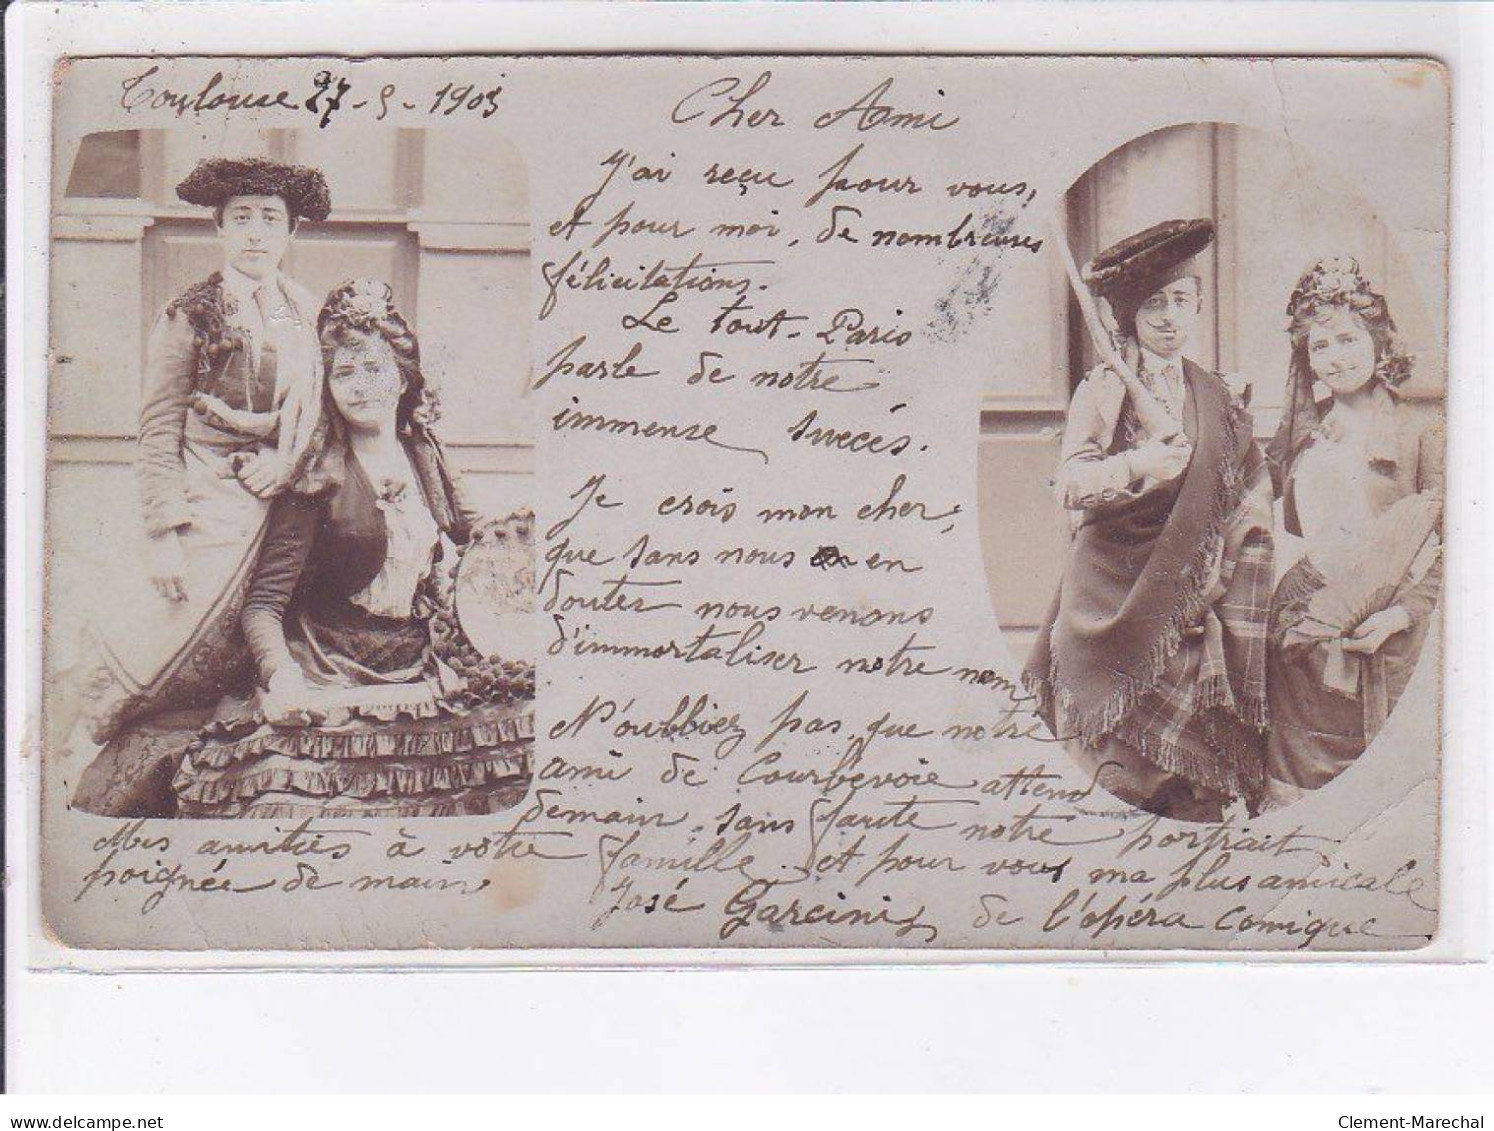 Toulouse 27-5-1903
Cher Ami
J'ai reçu pour vous,
et pour moi, de nombreuses
félicitations.
Le tout-Paris
parle de notre
immense succés.
Je crois mon cher,
que sans nous en
douter nous venons
d'immortaliser notre nom
N'oubliez pas que notre
ami de Courbevoie attend
demain, sans faute notre portrait
Mes amitiés à votre famille. et pour vous ma plus amicale
poignée de main.
José Garcini, de l'opéra Comique
delcampe.net
Clement-Marechal